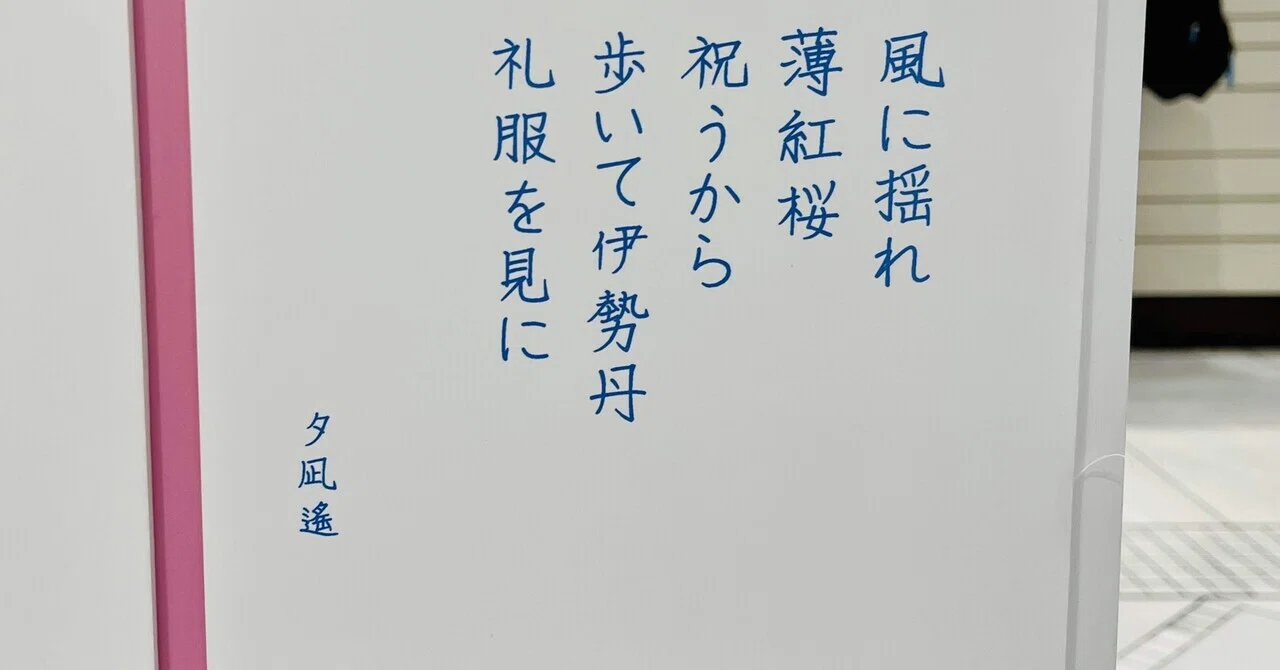 風に揺れ
薄紅桜
祝うから
歩いて伊勢丹
礼服を見に
夕凪遙